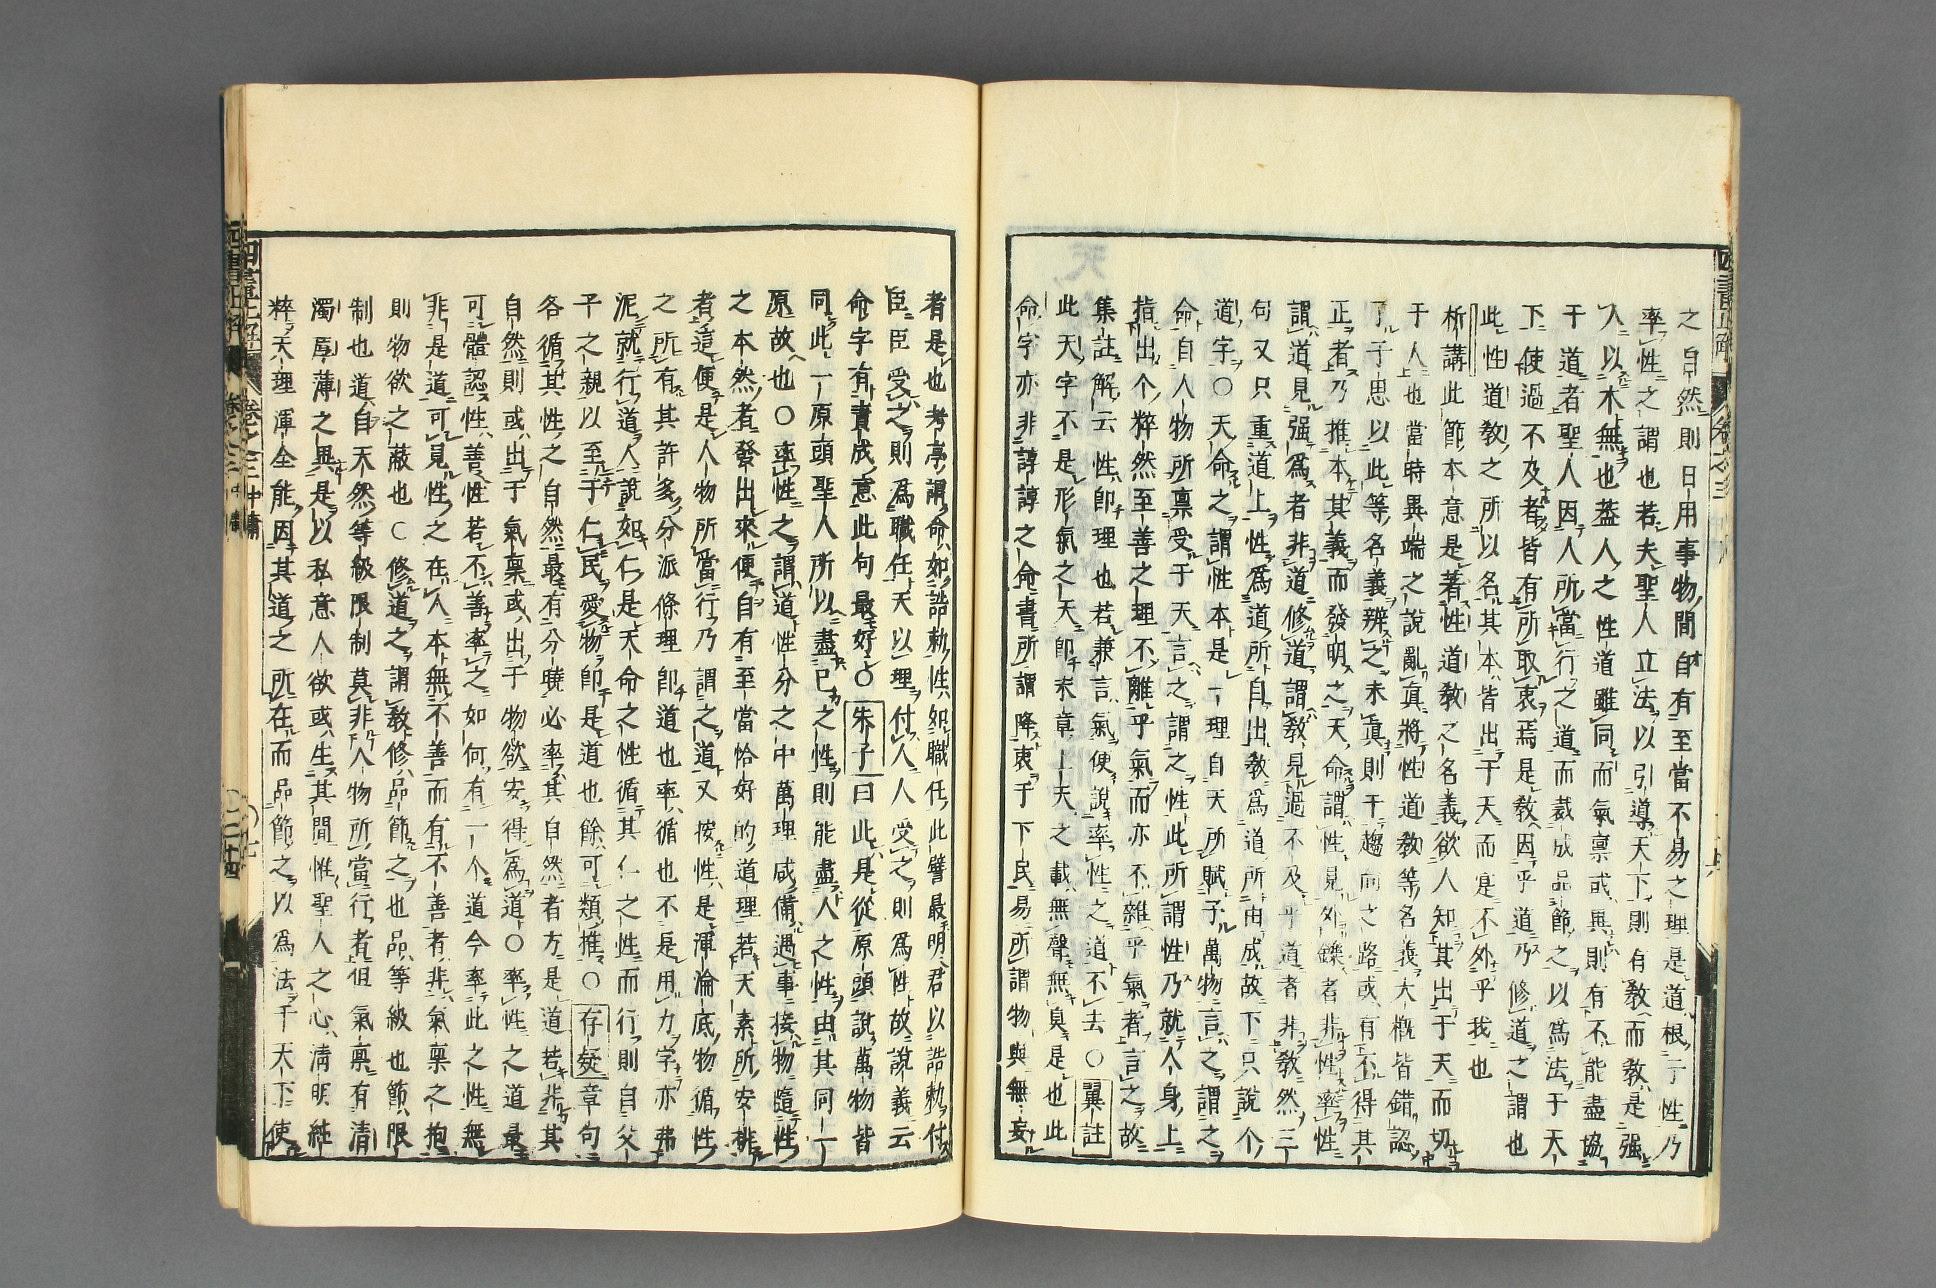 之自然則日用事物間自有至當不易之理是道根于性乃
率性之謂也若夫聖人立法以引導天下則有敎而敎是强
人以本無也葢人之性道雖同而氣禀或異則有不能盡協
于道者聖人因人所當行之道而裁成品節之以爲法于天
下使過不及者皆有所取衷焉是敎因乎道乃修道之謂也
此性道敎之所以名其本皆出于天而是不外乎我也
析講此節本意是著性道敎之名義欲人知其出于天而切
于人也當時異端之說亂眞將性道敎等名義大槪皆錯認
了子思以此等名義辨之未眞則于趨向之路或有不得其
正者乃推本其義而發明之天命謂性見外鑠者非性率性
謂道見强爲者非道修道謂敎見過不及乎道者非敎然三
句又只重道上性爲道所自出敎爲道所由成故下只說个
道字○天命之謂性本是一理自天所賦予萬物言之謂之
命自人物所禀受于天言之謂之性此所謂性乃就人身上
指出个粹然至善之理不離乎氣而亦不雜乎氣者言之故
集註解云性卽理也若兼言氣便說率性之道不去○翼註
此天字不是形氣之天卽末章上天之載無聲無臭是也此
命字亦非諄諄之命書所謂降衷于下民易所謂物與無妄
者是也考亭謂命如誥勅性如職任此譬最明君以誥勅付
臣臣受之則爲職任天以理付人人受之則爲性故說義云
命字有責成意此句最好○朱子曰此是從原頭說萬物皆
同此一原頭聖人所以盡己之性則能盡人之性由其同一
原故也○率性之謂道性分之中萬理咸備遇事接物隨性
之本然者發出來便自有至當恰好的道理若天素所安排
者這便是人物所當行乃謂之道又按性是渾淪底物循性
之所有其許多分派條理卽道也率循也不是用力字亦弗
泥就行道人說如仁是天命之性循其仁之性而行則自父
子之親以至于仁民愛物卽是道也餘可類推○存疑章句
各循其性之自然最有分曉必率其自然者方是道若非其
自然則或出于氣禀或出于物欲安得爲道○率性之道最
可體認性善性若不善率之如何有一个道今率此之性無
非是道可見性之在人本無不善而有不善者非氣禀之拘
則物欲之蔽也○修道之謂敎修品節之也品等級也節限
制也道自天然等級限制莫非人物所當行者但氣禀有清
濁厚薄之異是以私意人欲或生其間惟聖人之心清明純
粹天理渾全能因其道之所在而品節之以爲法于天下使
四書正解
卷之三
中庸